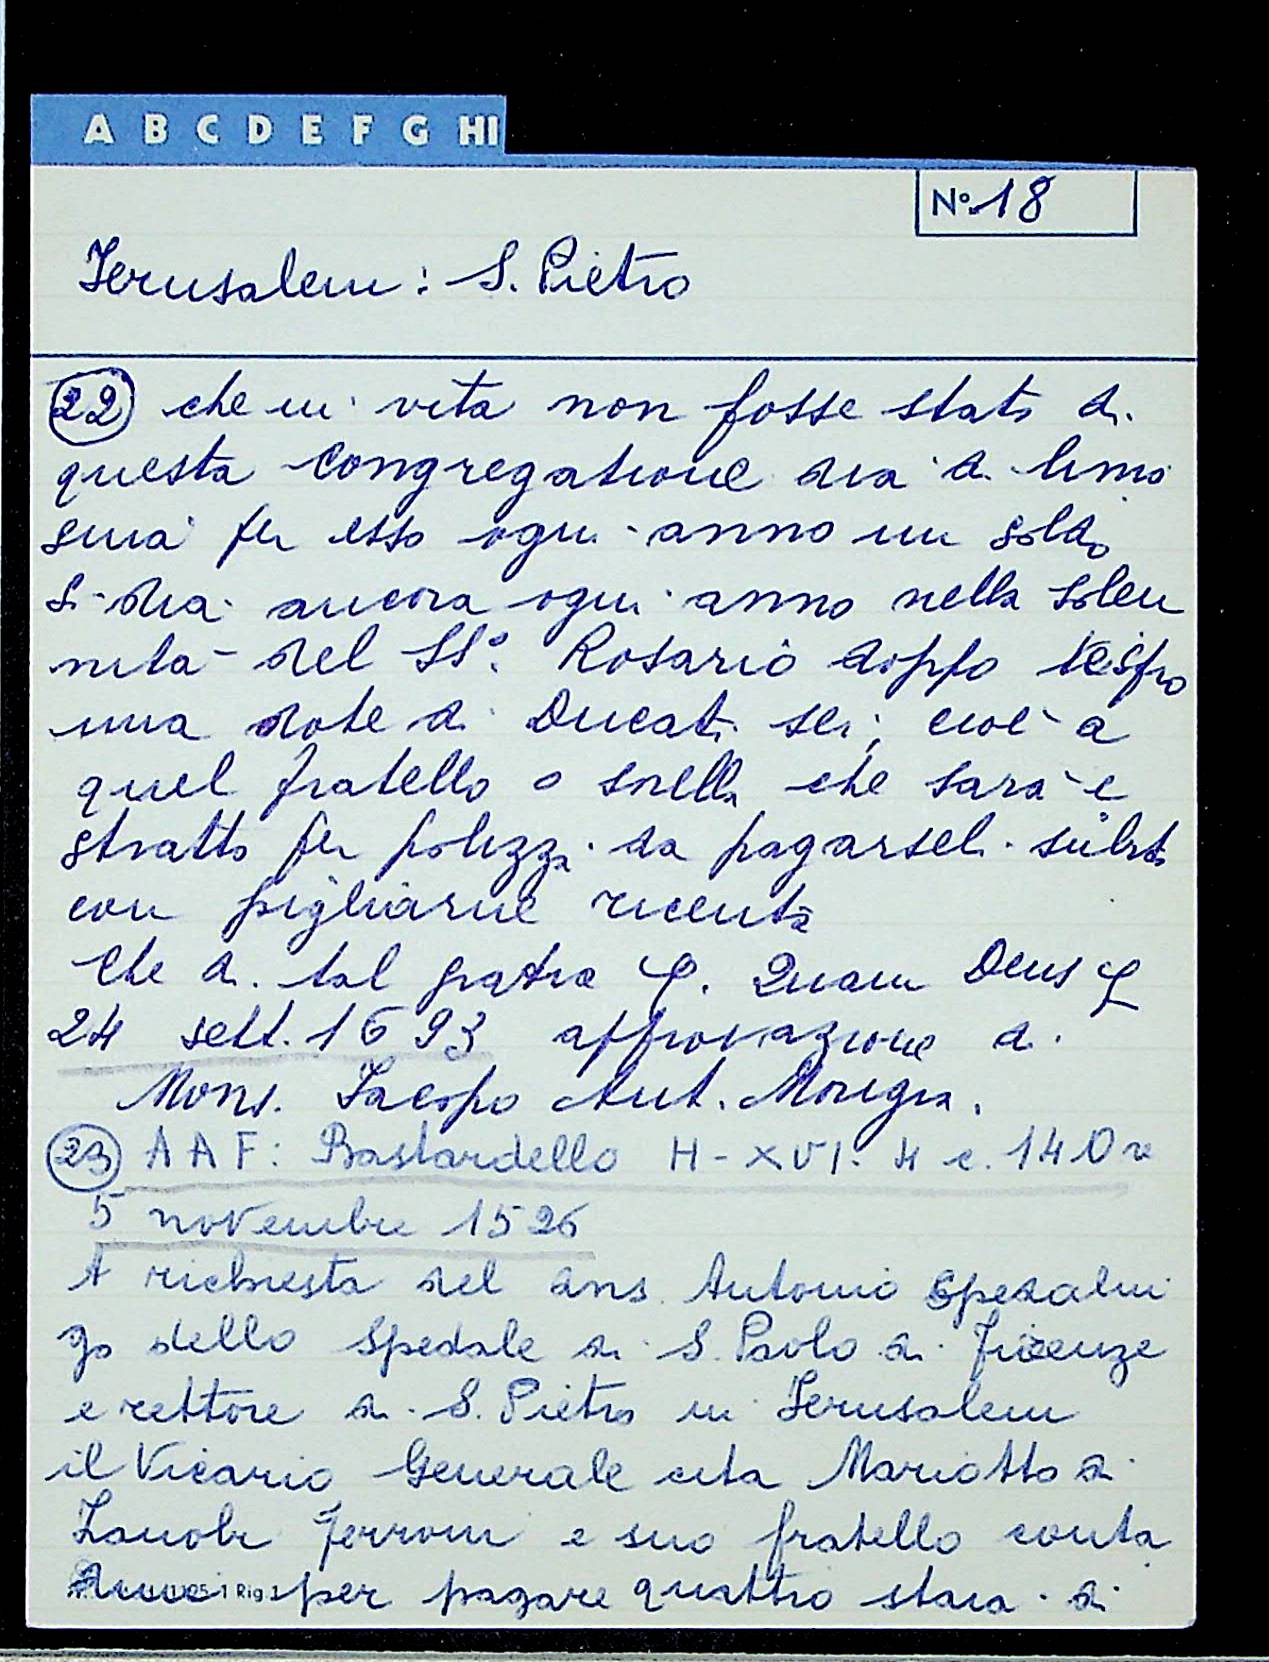 A B C D E F G HI
N° 18
Jerusalem: S. Pietro
22 che in vita non fosse stato di
questa congregatione dia di limo
sina per esso ogni anno un soldo
Si dia ancora ogni anno nella solen
nità del SS°. Rosario doppo Vespro
una dote di Ducati sei; cioè a
quel fratello o sorella che sarà e
stratto per polizza da pagarseli subito
con pigliarne riceuta
Che di tal gratia &. Quam Deus &
24 sett. 1693 approvazione di
Mons. Jacopo Ant. Morigia.
23 AAF: Bastardello H-XVI. 4 c. 140v
5 novembre 1526
A richiesta del Antonio Spedalin
go dello Spedale di S. Paolo di Firenze
e rettore di S. Pietro in Jerusalem
il Vicario Generale cita Mariotto di
Zanobi Ferroni e suo fratello conta
per pagare quattro staia di